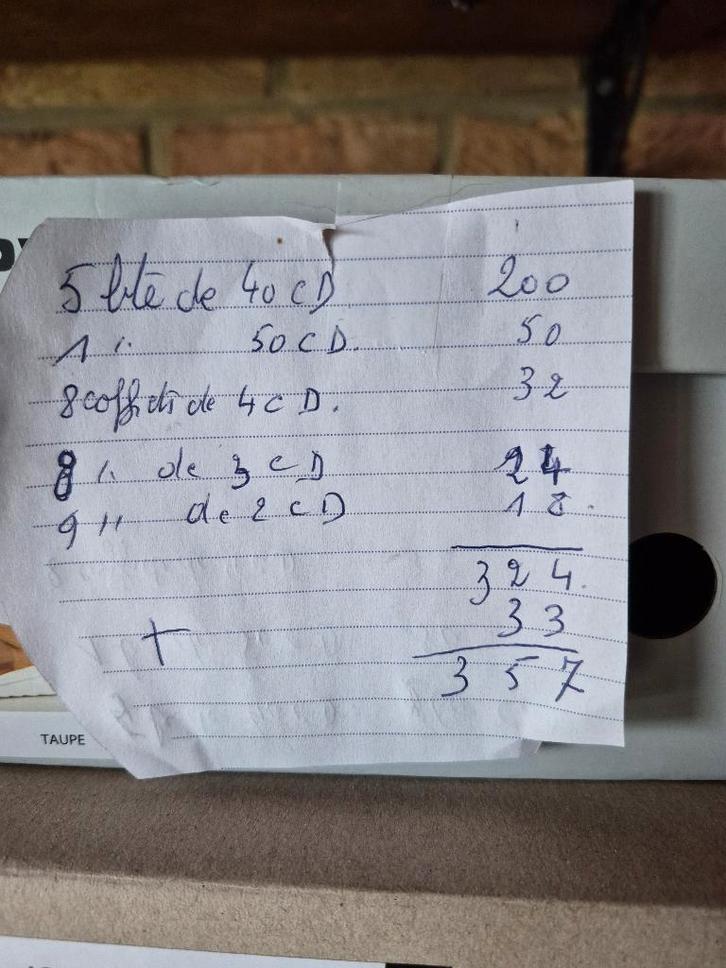 5 bte de 40 CD 200
1 " 50 CD. 50
8 coffrets de 4 CD. 32
8 " de 3 CD 24
9 " de 2 CD 18.
324.
+ 33
357
TAUPE